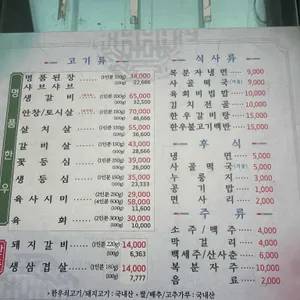 고기류
명품된장 (1인분 150g) 34,000
샤브샤브 (100g) 22,666
생갈비 (1인분 200g) 65,000
(100g) 32,500
안창/토시살 (1인분 150g) 70,000
(100g) 46,666
살치살 (1인분 150g) 55,000
(100g) 36,666
갈비살 (1인분 150g) 43,000
(100g) 28,666
꽃등심 (1인분 150g) 39,000
(100g) 26,000
생등심 (1인분 150g) 35,000
(100g) 23,333
육사시미 (2인분 250g) 29,000
(4인분 500g) 58,000
(100g) 11,600
육회 (2인분 300g) 30,000
(100g) 10,000
돼지갈비 (1인분 220g) 14,000
(100g) 6,363
생삼겹살 (1인분 180g) 14,000
(100g) 7,777
명품한우
식사류
복분자냉면 9,000
사골떡국 9,000
육회비빔밥 10,000
김치전골 10,000
한우갈비탕 15,000
한우불고기백반 15,000
후식
냉면 5,000
사골떡국 5,000
누룽지 3,000
공기밥 1,000
면사리 2,000
주류
소주/맥주 4,000
막걸리 4,000
백세주/산사춘 6,000
복분자주 10,000
음료 2,000
* 한우쇠고기/돼지고기 : 국내산 * 쌀/배추/고추가루 : 국내산